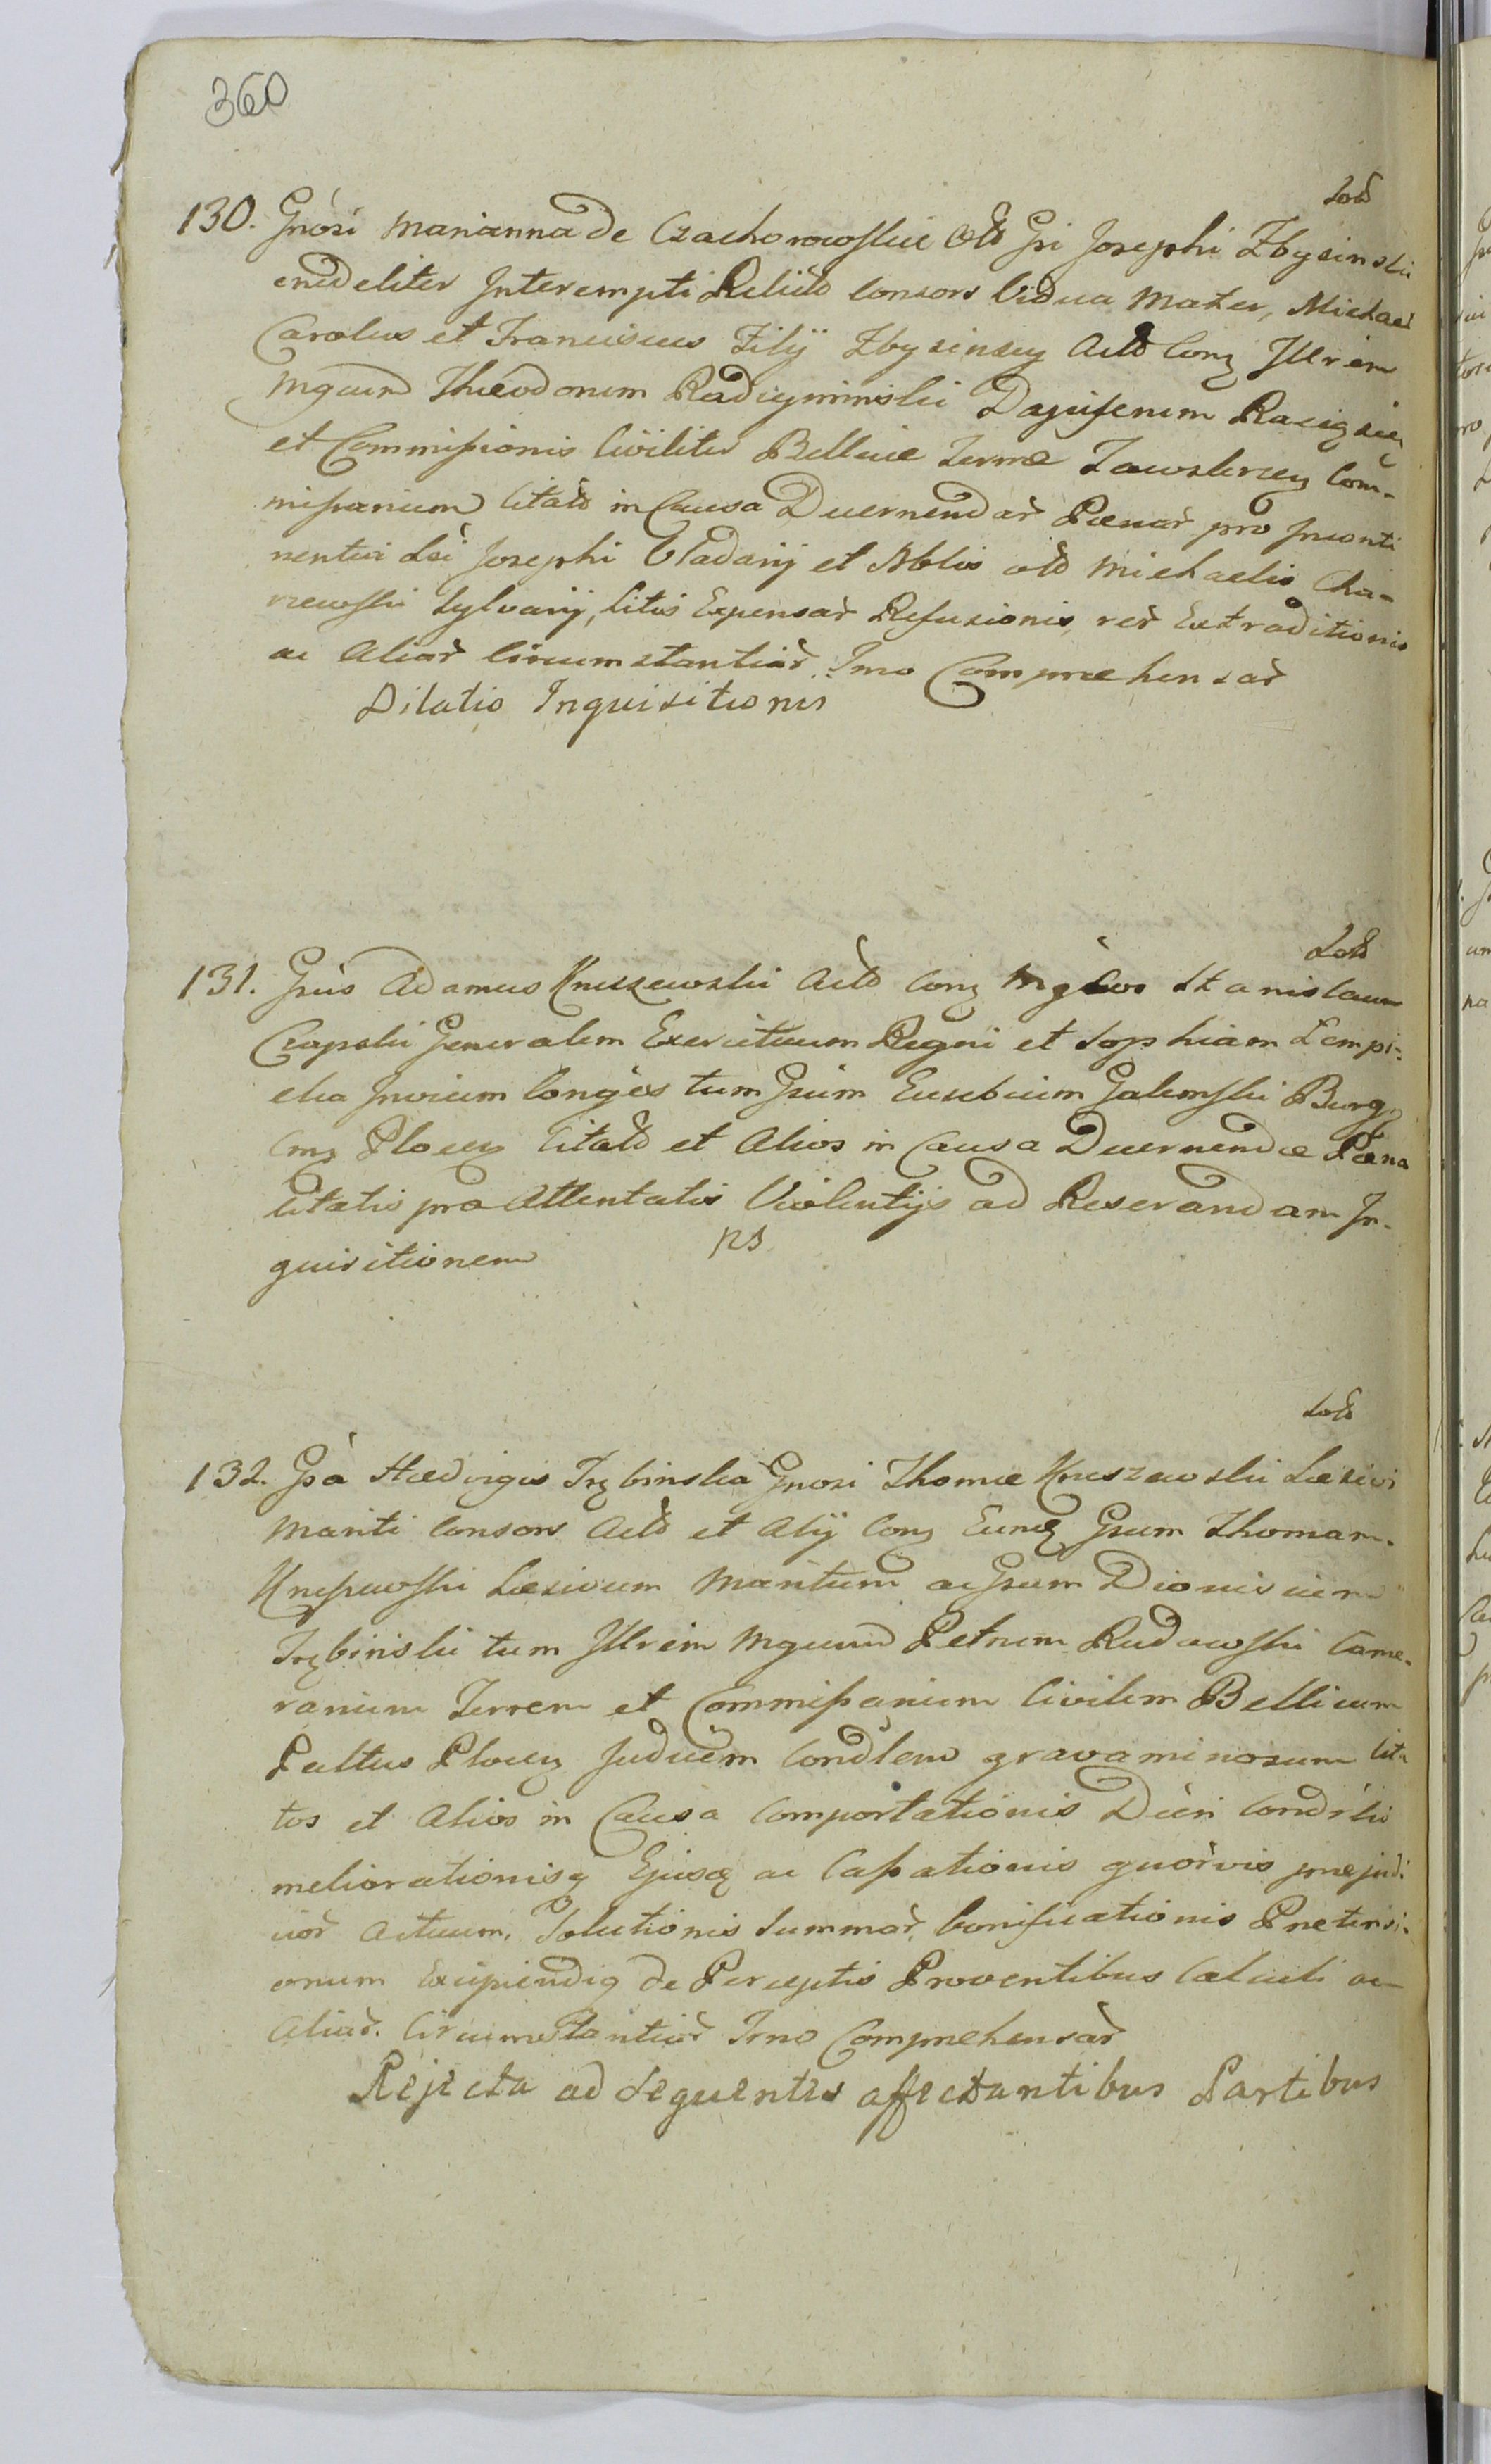 360
Sol
130. Gnosi Marianna de Czachorowskie olo Gsi Josephi Zbysinski
crudeliter Interempti Relicto Consors Vidua Mater, Michael
Carolus et Franciscus Filij Zbysinscy Acto Con Illrem
Mgcum Theodorum Radzyminski Dapiferum Raciązien
et Commissionis Civiliter Bellicae Terrae Zawskrzen Com-
missarium Citato in Causa Decernendar Poenar pro Inconti
nentur Lsi Josephi Vladarij et Nblis olo Michaelis Cha-
rzewski Sylvarij, Litis Expensar Refusionis, rer Extraditionis
ac Aliar Circumstantiar Tmo Comprehensar
Dilatio Inquisitionis
Sol
131. Gsus Adamus Kniszewski Acto Con Mgcos Stanislaum
Czapski Generalem Exercituum Regni et Sophiam Lempi-
cka Invicem Conges tum Gsum Eusebium Galemski Burg
Cas Plocen Citato et Alios in Causa Decernendae Poena
litatis pro Attentatis Violentijs ad Reserandam In-
quisitionem
ns
Sol
132. Gsa Haedvigis Trzbinska Gnosi Thomae Kniszewski Laesivi
Mariti Consors Acto et Alij Con Eundq Gsum Thomam
Knissewski Laesivum Maritum ac Gsum Dionisium
Trzbinski tum Illrem Mgcum Petrum Rudowski Came-
rarium Terrem et Commissarium Civilem Bellicum
Paltus Plocen Judicem Condlem gravaminosum Cita
tos et Alios in Causa Comportationis Dcti Condsti
meliorationisq Ejusq ac Cassationis quorvis praejudi
cior Actuum, Solutionis Summar, bonificationis Praetensi-
onum Excipiendiq de Perceptis Proventibus Calculi ac
Aliar. Circumstantiar Tmo Comprehensar
Rejecta ad sequentes affectantibus Partibus